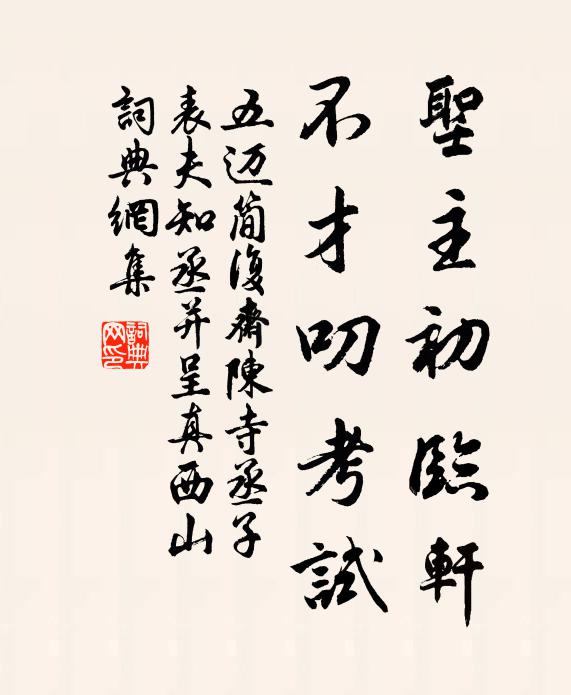 聖主初臨軒
不才叨考試
五迈简復齋陳寺丞子
表夫知丞并呈真西山
詞典網集
詞典
网印